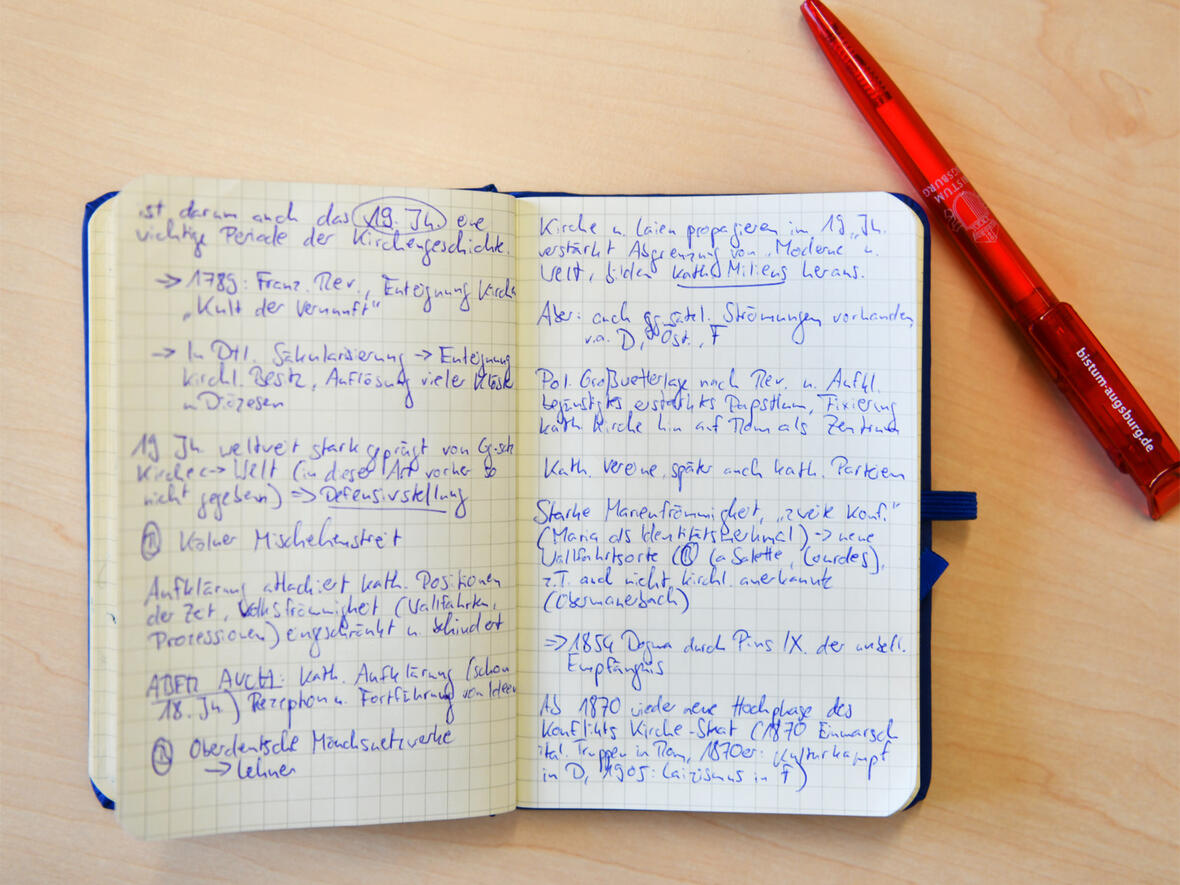 ist darum auch das 19. Jh. eine
wichtige Periode der Kirchengeschichte.
→ 1789: Franz. Rev., Enteignung Kirche
„Kult der Vernunft“
→ In Dtl. Säkularisierung → Enteignung
kirchl. Besitz, Auflösung vieler Klöst
u. Diözesen
19 Jh. weltweit stark geprägt von Gg.satz
Kirche <-> Welt (in dieser Art vorher so
nicht gegeben) => Defensivstellung
Kölner Mischehenstreit
Aufklärung attackiert kath. Positionen
der Zeit, Volksfrömmigkeit (Wallfahrten,
Prozessionen) eingeschränkt u. behindert
ABER AUCH: kath. Aufklärung (schon
18. Jh.) Rezeption u. Fortführung von Ideen
Oberdeutsche Mönchsnetzwerke
→ Lehrer
Kirche u. Laien propagieren im 19. Jh.
verstärkt Abgrenzung von „Moderne“ u.
Welt, bilden kath. Milieus heraus.
Aber: auch gg.sätzl. Strömungen vorhanden,
v.a. D, Öst., F
Pol. Großwetterlage nach Rev. u. Aufkl.
begünstigt erstarktes Papsttum, Fixierung
kath. Kirche hin auf Rom als Zentrum
Kath. Vereine, später auch kath. Parteien
Starke Marienfrömmigkeit, „zweite Konf.“
(Maria als Identitätsmerkmal) → neue
Wallfahrtsorte (La Salette, Lourdes),
z.T. auch nicht kirchl. anerkannte
(Obermauerbach)
=> 1854 Dogma durch Pius IX. der unbefl.
Empfängnis
Ab 1870 wieder neue Hochphase des
Konflikts Kirche-Staat (1870 Einmarsch
ital. Truppen in Rom, 1870er: Kulturkampf
in D, 1905: Laizismus in F)
BISTUM
AUGSBURG
bistum-augsburg.de